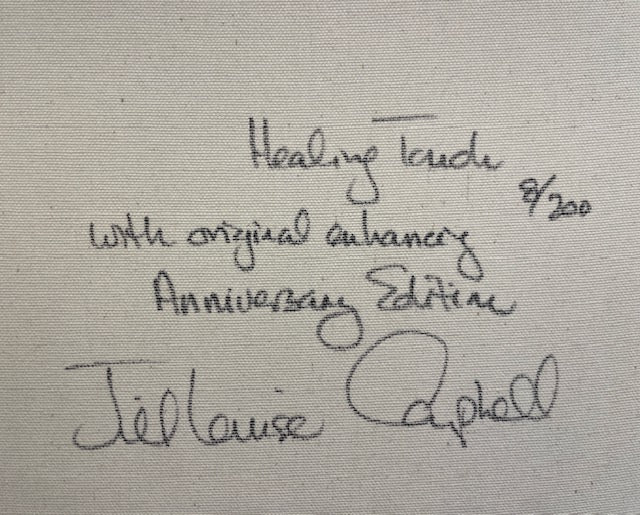 Healing Touch
8/200
with original enhancing
Anniversary Edition
Jill Louise Campbell